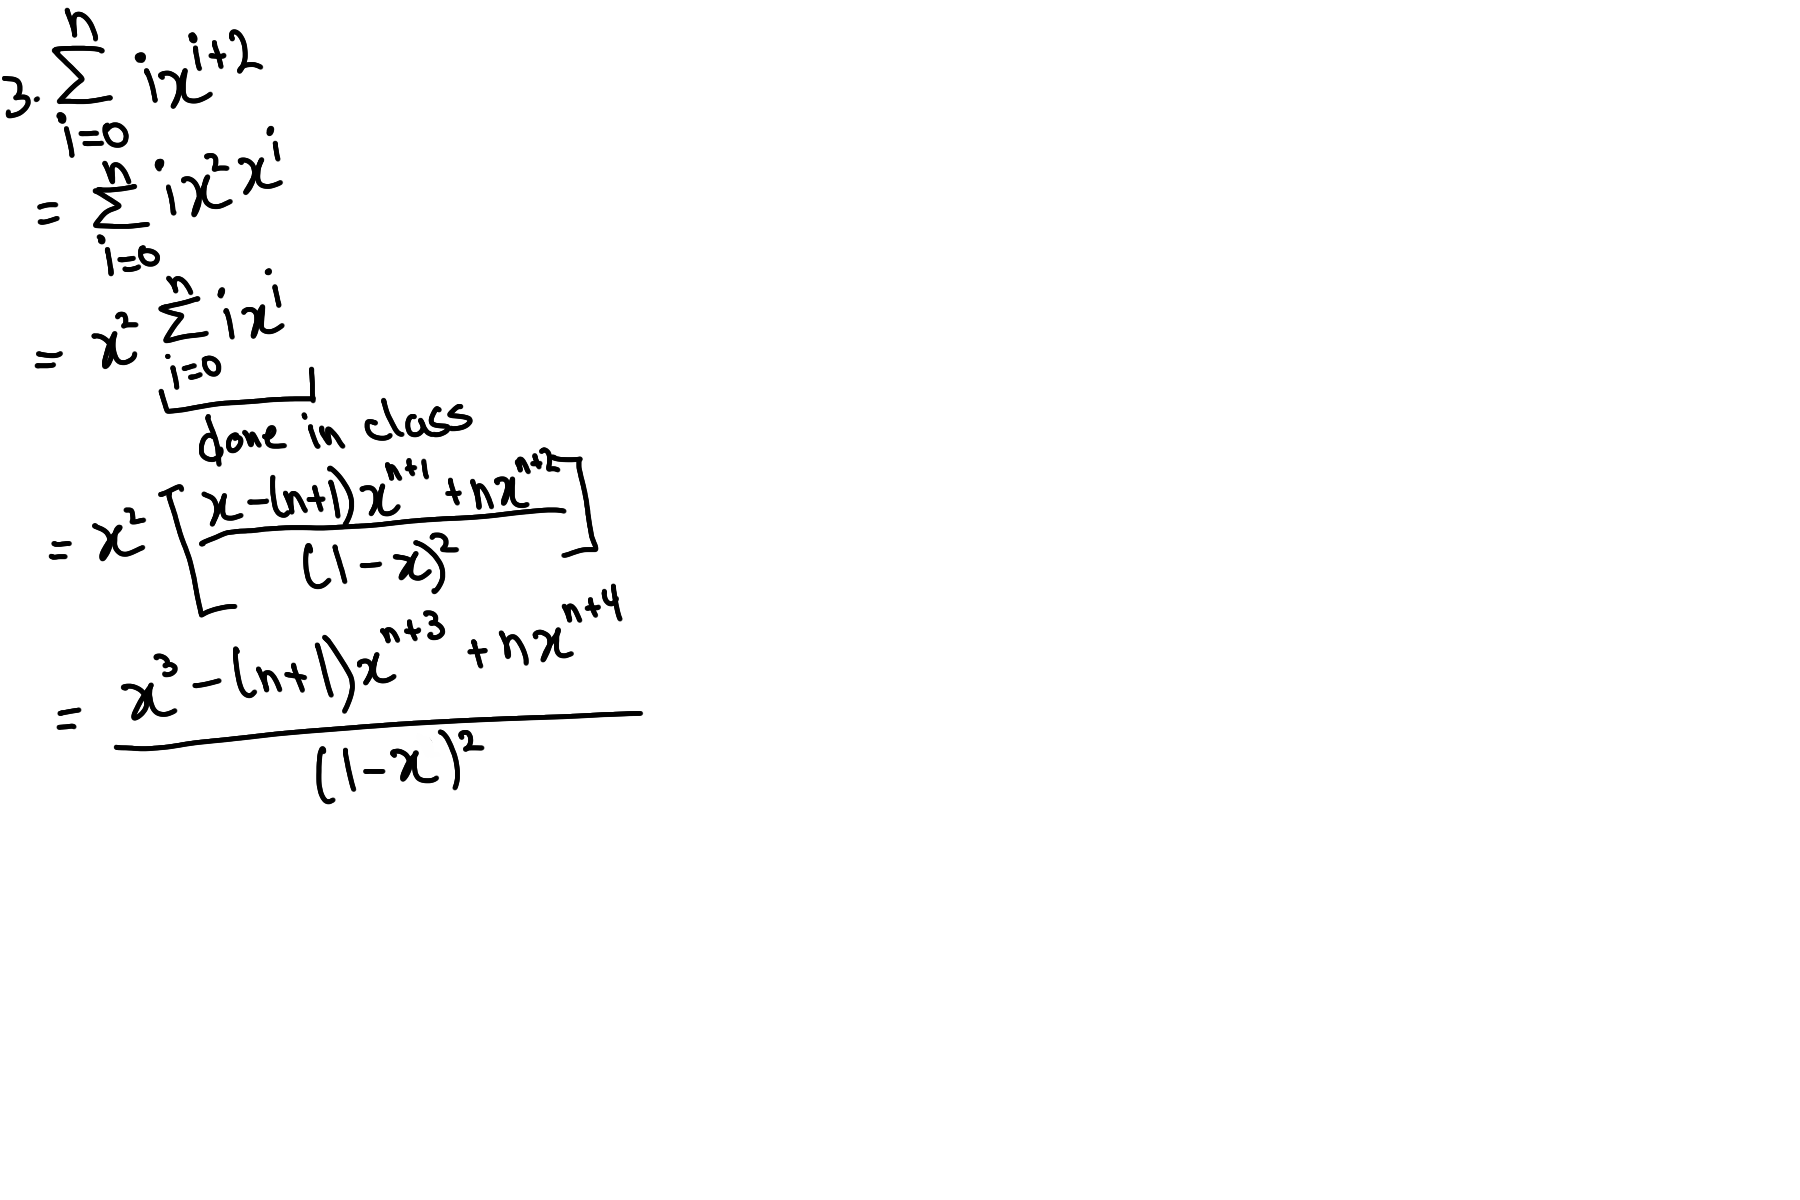 3. \sum_{i=0}^{n} i x^{i+2}
= \sum_{i=0}^{n} i x^2 x^i
= x^2 \sum_{i=0}^{n} i x^i
done in class
= x^2 \left[ \frac{x - (n+1) x^{n+1} + n x^{n+2}}{(1-x)^2} \right]
= \frac{x^3 - (n+1) x^{n+3} + n x^{n+4}}{(1-x)^2}